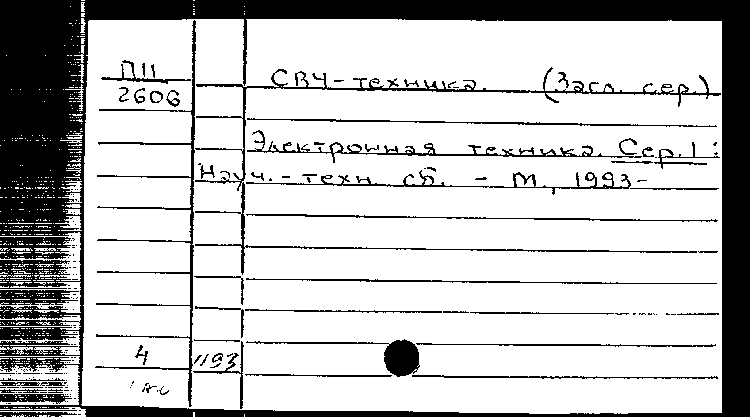 П11
2606
СВЧ-техника. (Загл. сер.)
Электронная техника. Сер. 1:
Науч.-техн. сб. - М., 1993-
4
1193